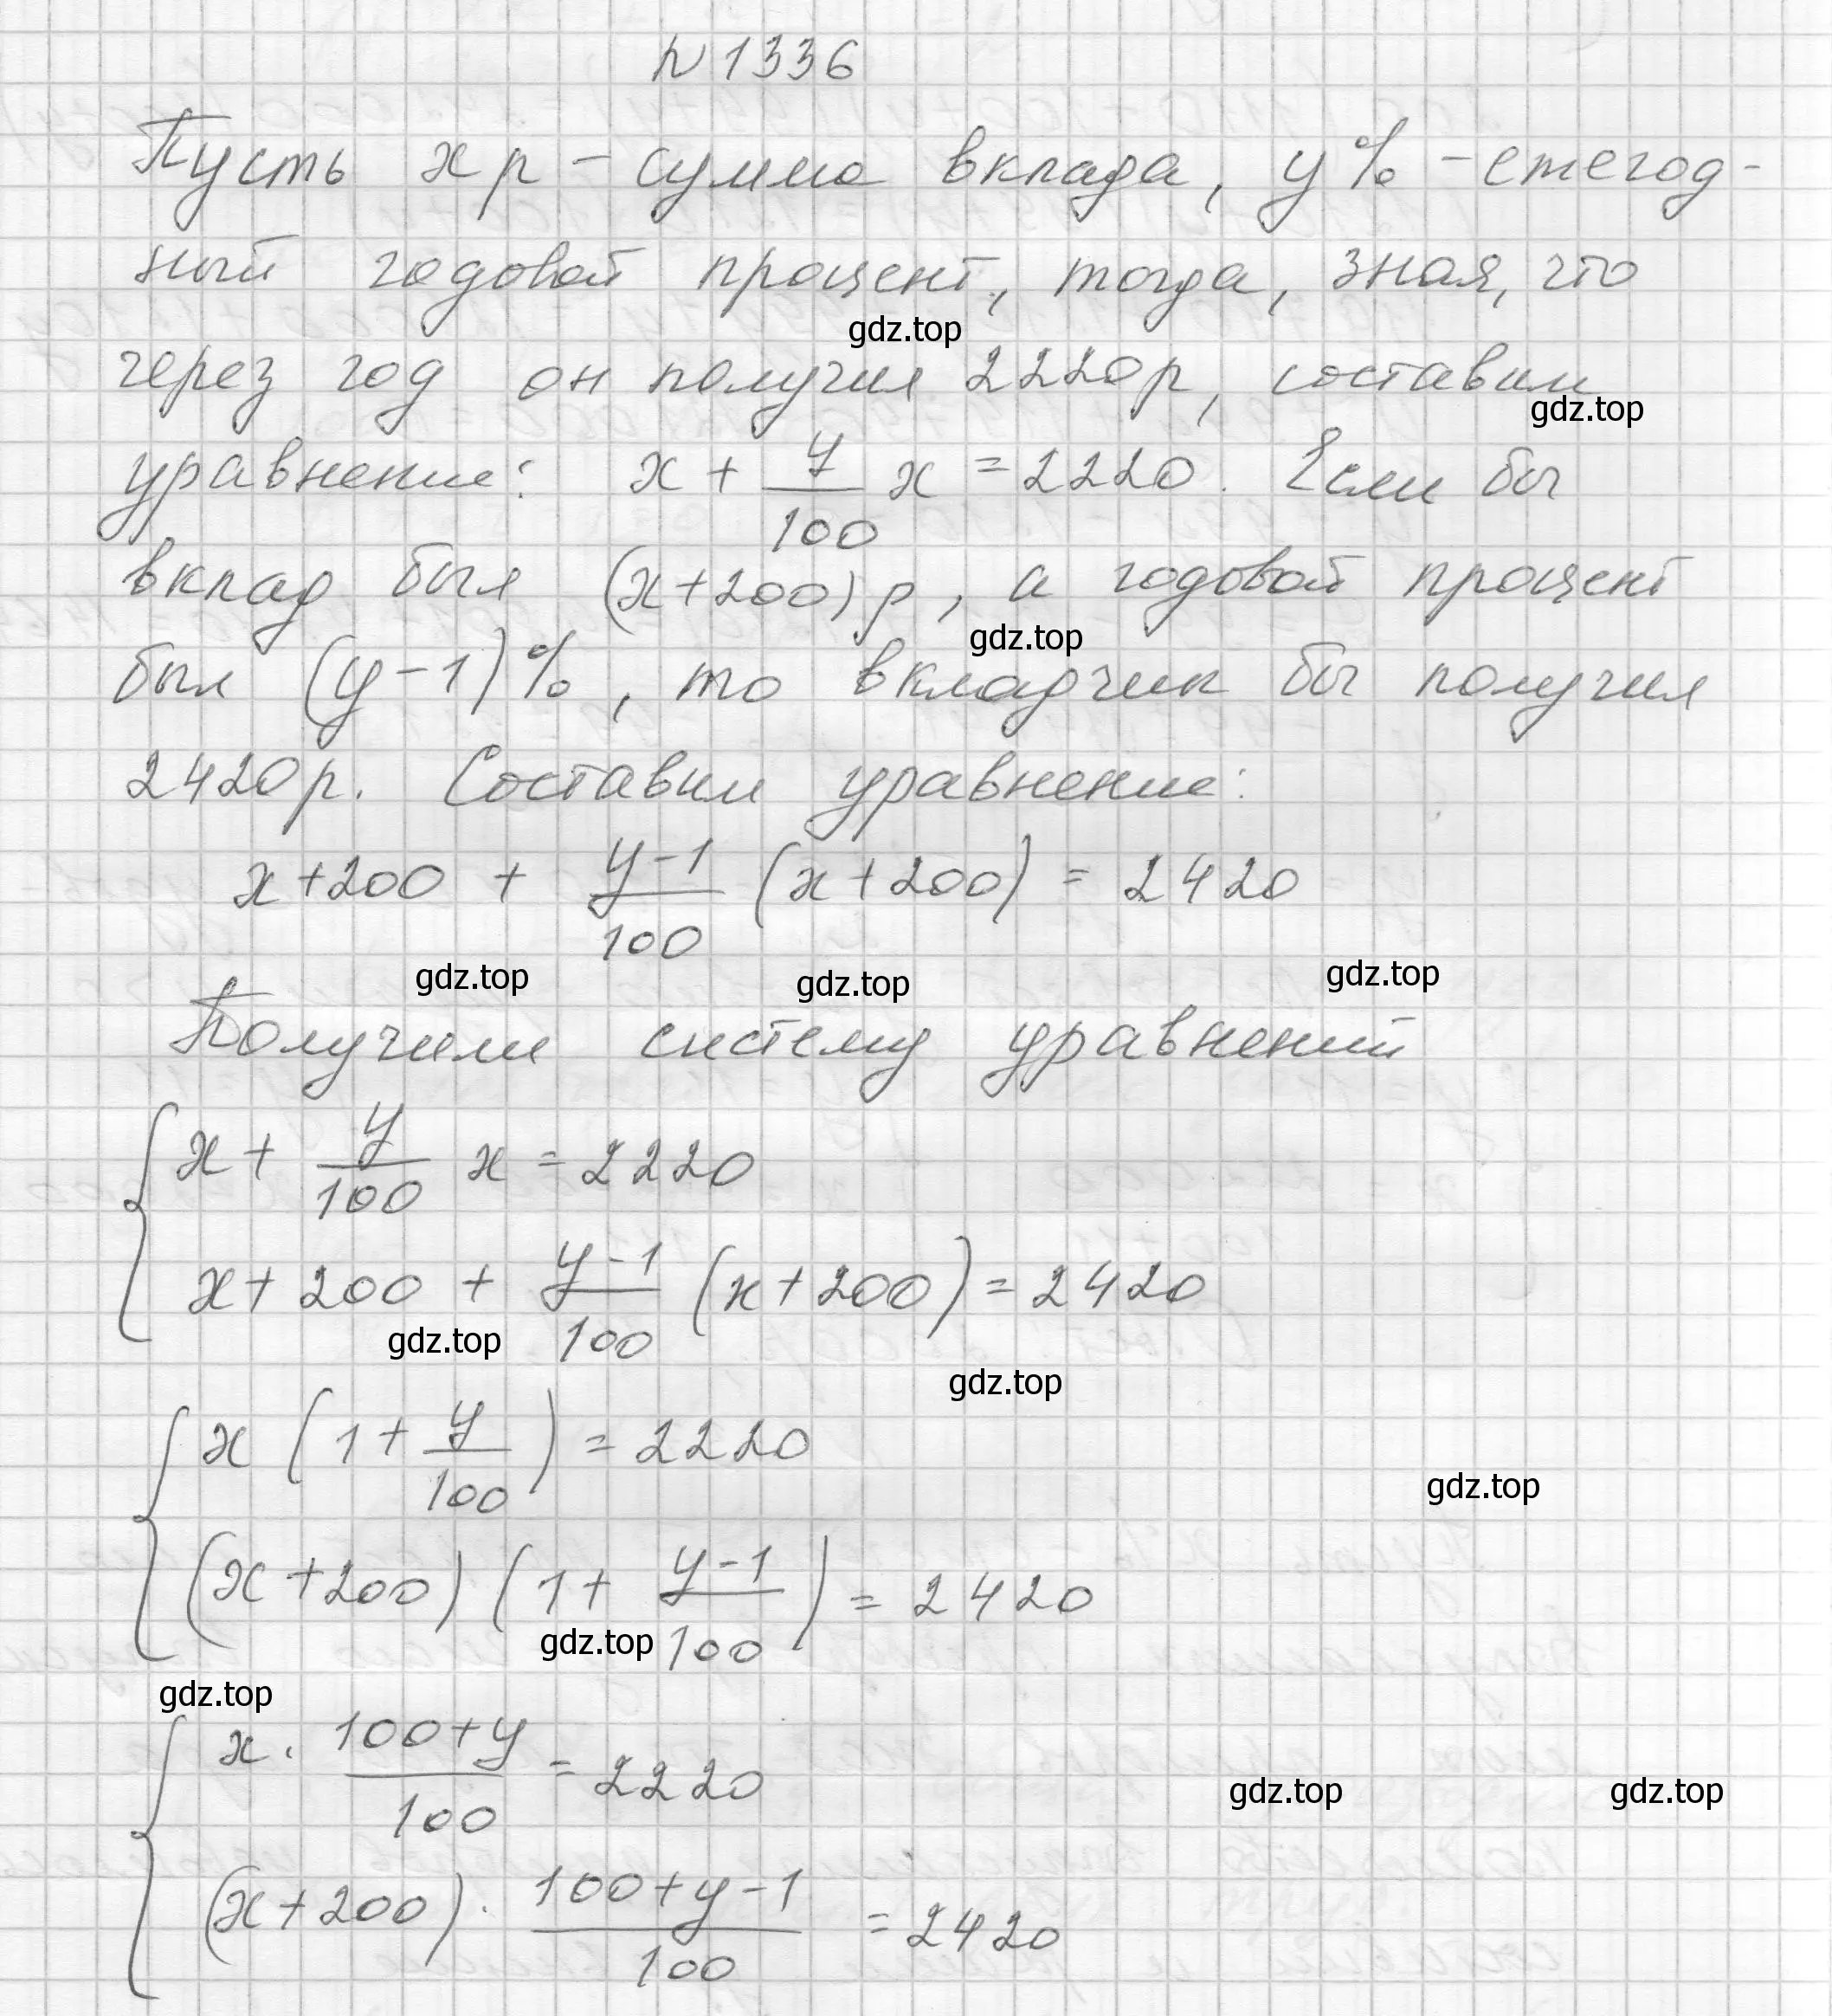 n 1336
Пусть x р – сумма вклада, y% – ежегод-
ный годовой процент, тогда, зная, что
gdz.top
через год он получил 2220р, составим
gdz.top
уравнение: x + y/100 x = 2220. Если бы
вклад был (x+200) р, а годовой процент
gdz.top
был (y-1)%, то вкладчик бы получил
2420р. Составим уравнение:
x+200 + (y-1)/100 (x+200) = 2420
gdz.top gdz.top gdz.top
Получили систему уравнений
{ x + y/100 x = 2220
x + 200 + (y-1)/100 (x+200) = 2420
gdz.top
gdz.top
{ x (1 + y/100) = 2220
gdz.top
(x+200) (1 + (y-1)/100) = 2420
gdz.top
gdz.top
{ x · (100+y)/100 = 2220
gdz.top gdz.top
(x+200) · (100+y-1)/100 = 2420